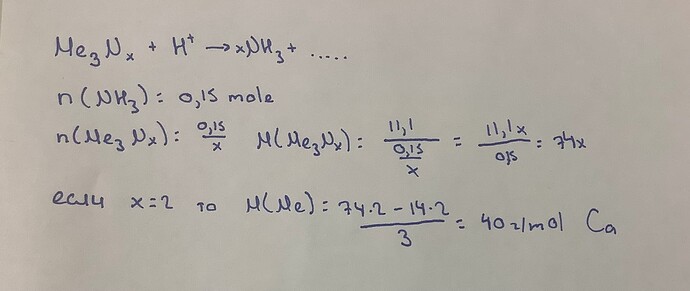 Me₃Nₓ + H⁺ → xNH₃ + .....
n(NH₃) = 0,15 mole
n(Me₃Nₓ) = 0,15/x M(Me₃Nₓ) = 11,1/(0,15/x) = 11,1x/0,15 = 74x
если x=2 то M(Me) = (74·2 − 14·2)/3 = 40 г/mol Ca